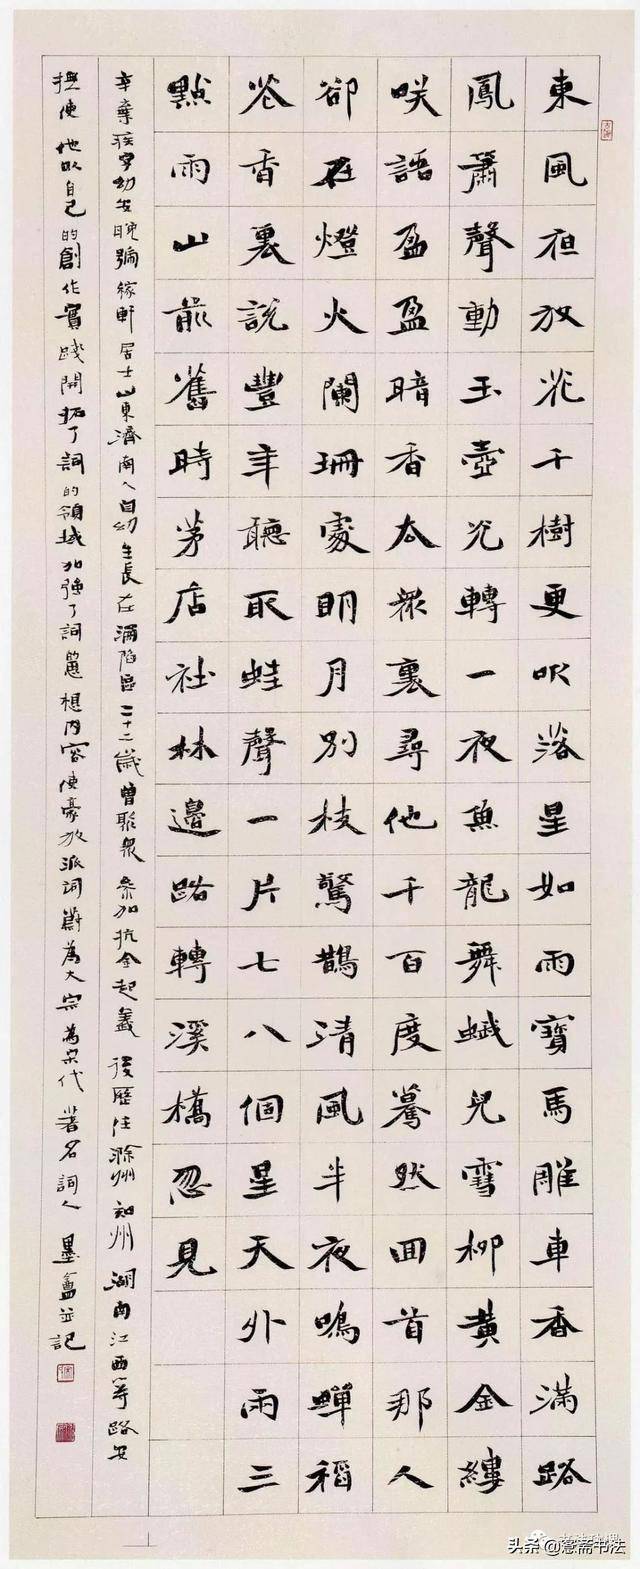 東風夜放花千樹更吹落星如雨寶馬雕車香滿路
鳳簫聲動玉壺光轉一夜魚龍舞蛾兒雪柳黃金縷
咲語盈盈暗香去眾裏尋他千百度驀然回首那人
卻在燈火闌珊處明月別枝驚鵲清風半夜鳴蟬稻
花香裏說豐年聽取蛙聲一片七八個星天外雨三
點雨山前舊時茅店社林邊路轉溪橋忽見
辛棄疾字幼安晚號稼軒居士山東濟南人自幼生長在淪陷區二十二歲曾聚眾參加抗金起義後歷任滁州知州湖南江西等路安
撫使他以自己的創作實踐開拓了詞的領域加強了詞思想內容使豪放派詞蔚為大宗為宋代著名詞人墨盦並記
头条 @斋书法